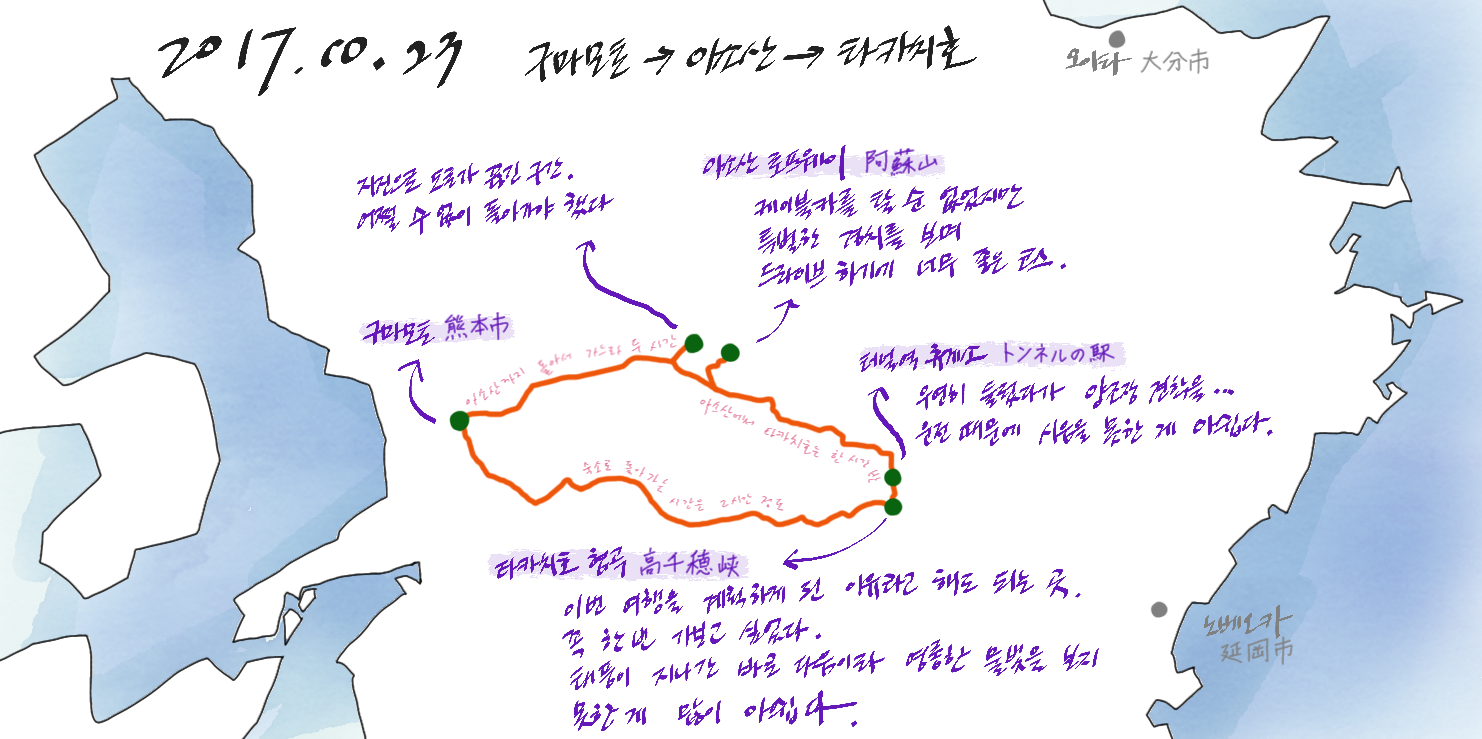 2017.10.23 구마모토 → 아소산 → 타카치호
오이타 大分市
지진으로 도로가 끊긴 구간.
어쩔 수 없이 돌아가야 했다
아소산 로프웨이 阿蘇山
케이블카를 탈 순 없었지만
특별한 경치를 보며
드라이브 하기에 너무 좋은 코스.
구마모토 熊本市
아소산까지 돌아서 가느라 두 시간
터널역 휴게소 トンネルの駅
우연히 들렀다가 양조장 견학을...
운전 때문에 시음을 못한 게 아쉽다.
아소산에서 타카치호는 한 시간 반
숙소로 돌아가는
시간은 2시간 정도
타카치호 협곡 高千穂峡
이번 여행을 계획하게 된 이유라고 해도 되는 곳.
꼭 한번 가보고 싶었다.
태풍이 지나간 바로 다음이라 영롱한 물빛을 보지
못한 게 많이 아쉽다.
노베오카
延岡市